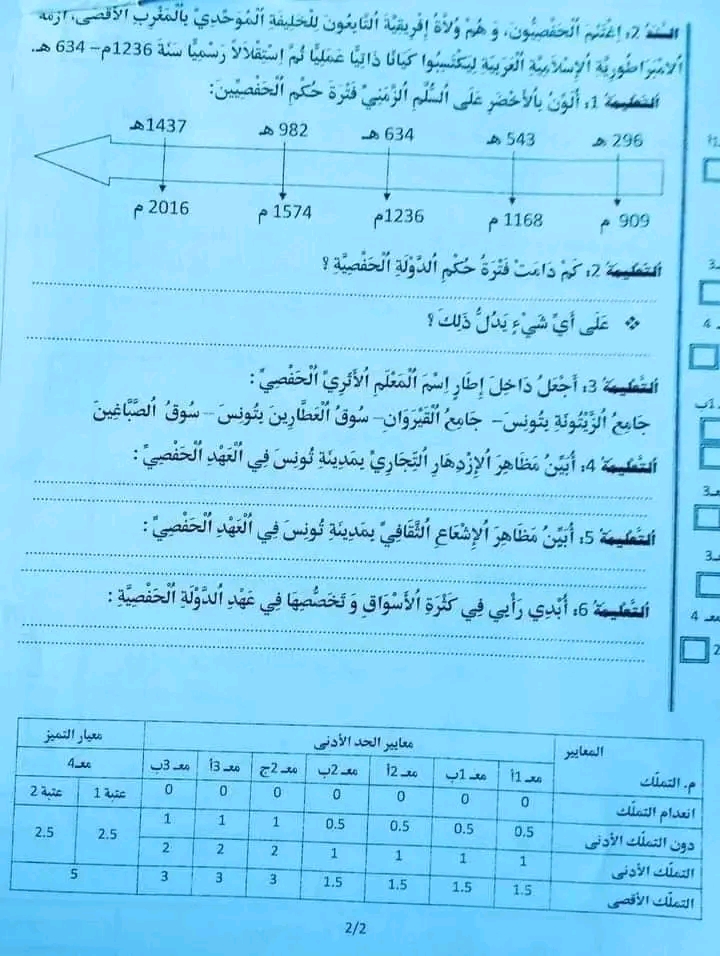 السند 2: اِغْتَنَمَ اُلْحَفْصِيُّونَ، وَ هُمْ وُلاَةُ إِفْرِيقِيَّةَ اُلتَّابِعُونَ لِلْخَلِيفَةِ اُلْمُوَحِّدِيِّ بِالْمَغْرِبِ اُلأَقْصَى، أَزْمَةَ
اُلاِمْبَرَاطُورِيَّةِ اُلإِسْلاَمِيَّةِ اُلْغَرْبِيَّةِ لِيَكْتَسِبُوا كَيَانًا ذَاتِيًّا عَمَلِيًّا ثُمَّ اِسْتِقْلاَلاً رَسْمِيًّا سَنَةَ 1236م– 634 هـ.
التعليمة 1: أُلَوِّنُ بِالأَخْضَرِ عَلَى اُلسُّلَّمِ اُلزَّمَنِيِّ فَتْرَةَ حُكْمِ اُلْحَفْصِيِّينَ:
296 هـ 543 هـ 634 هـ 982 هـ 1437هـ
909 م 1168 م 1236م 1574 م 2016 م
التعليمة 2: كَمْ دَامَتْ فَتْرَةُ حُكْمِ اُلدَّوْلَةِ اُلْحَفْصِيَّةِ ؟
❖ عَلَى أَيِّ شَيْءٍ يَدُلُّ ذَلِكَ ؟
التعليمة 3: أَجْعَلُ دَاخِلَ إِطَارٍ اِسْمَ اُلْمَعْلَمِ اُلأَثَرِيِّ اُلْحَفْصِيِّ :
جَامِعُ اُلزَّيْتُونَةِ بِتُونِسَ– جَامِعُ اُلْقَيْرَوَانِ– سُوقُ اُلْعَطَّارِينَ بِتُونِسَ – سُوقُ اُلصَّبَّاغِينَ
التعليمة 4: أُبَيِّنُ مَظَاهِرَ اُلاِزْدِهَارِ اُلتِّجَارِيِّ بِمَدِينَةِ تُونِسَ فِي اُلْعَهْدِ اُلْحَفْصِيِّ :
التعليمة 5: أُبَيِّنُ مَظَاهِرَ اُلإِشْعَاعِ اُلثَّقَافِيِّ بِمَدِينَةِ تُونِسَ فِي اُلْعَهْدِ اُلْحَفْصِيِّ :
التعليمة 6: أُبْدِي رَأْيِي فِي كَثْرَةِ اُلأَسْوَاقِ وَ تَخَصُّصِهَا فِي عَهْدِ اُلدَّوْلَةِ اُلْحَفْصِيَّةِ :
المعايير معايير الحد الأدنى معيار التميز
م. التملّك معـ 1أ معـ 1ب معـ 2أ معـ 2ب معـ 2ج معـ 3أ معـ 3ب معـ4
انعدام التملّك 0 0 0 0 0 0 0 عتبة 1 عتبة 2
دون التملّك الأدنى 0.5 0.5 0.5 0.5 1 1 1 2.5 2.5
التملّك الأدنى 1 1 1 1 2 2 2
التملّك الأقصى 1.5 1.5 1.5 1.5 3 3 3 5
2/2